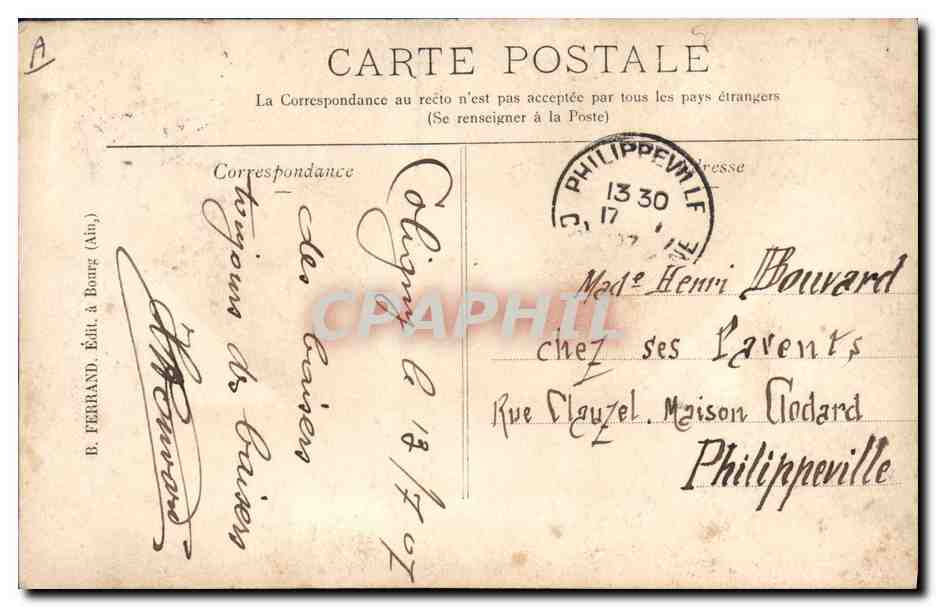 A
CARTE POSTALE
La Correspondance au recto n'est pas acceptée par tous les pays étrangers
(Se renseigner à la Poste)
Correspondance
Coligny le 13/7 07
des baisers
toujours des baisers
B. FERRAND. Édit. à Bourg (Ain,)
PHILIPPEVILLE
13 30
17
Made Henri Bouvard
chez ses Parents
Rue Clauzel. Maison Clodard
Philippeville
CPAPHIL